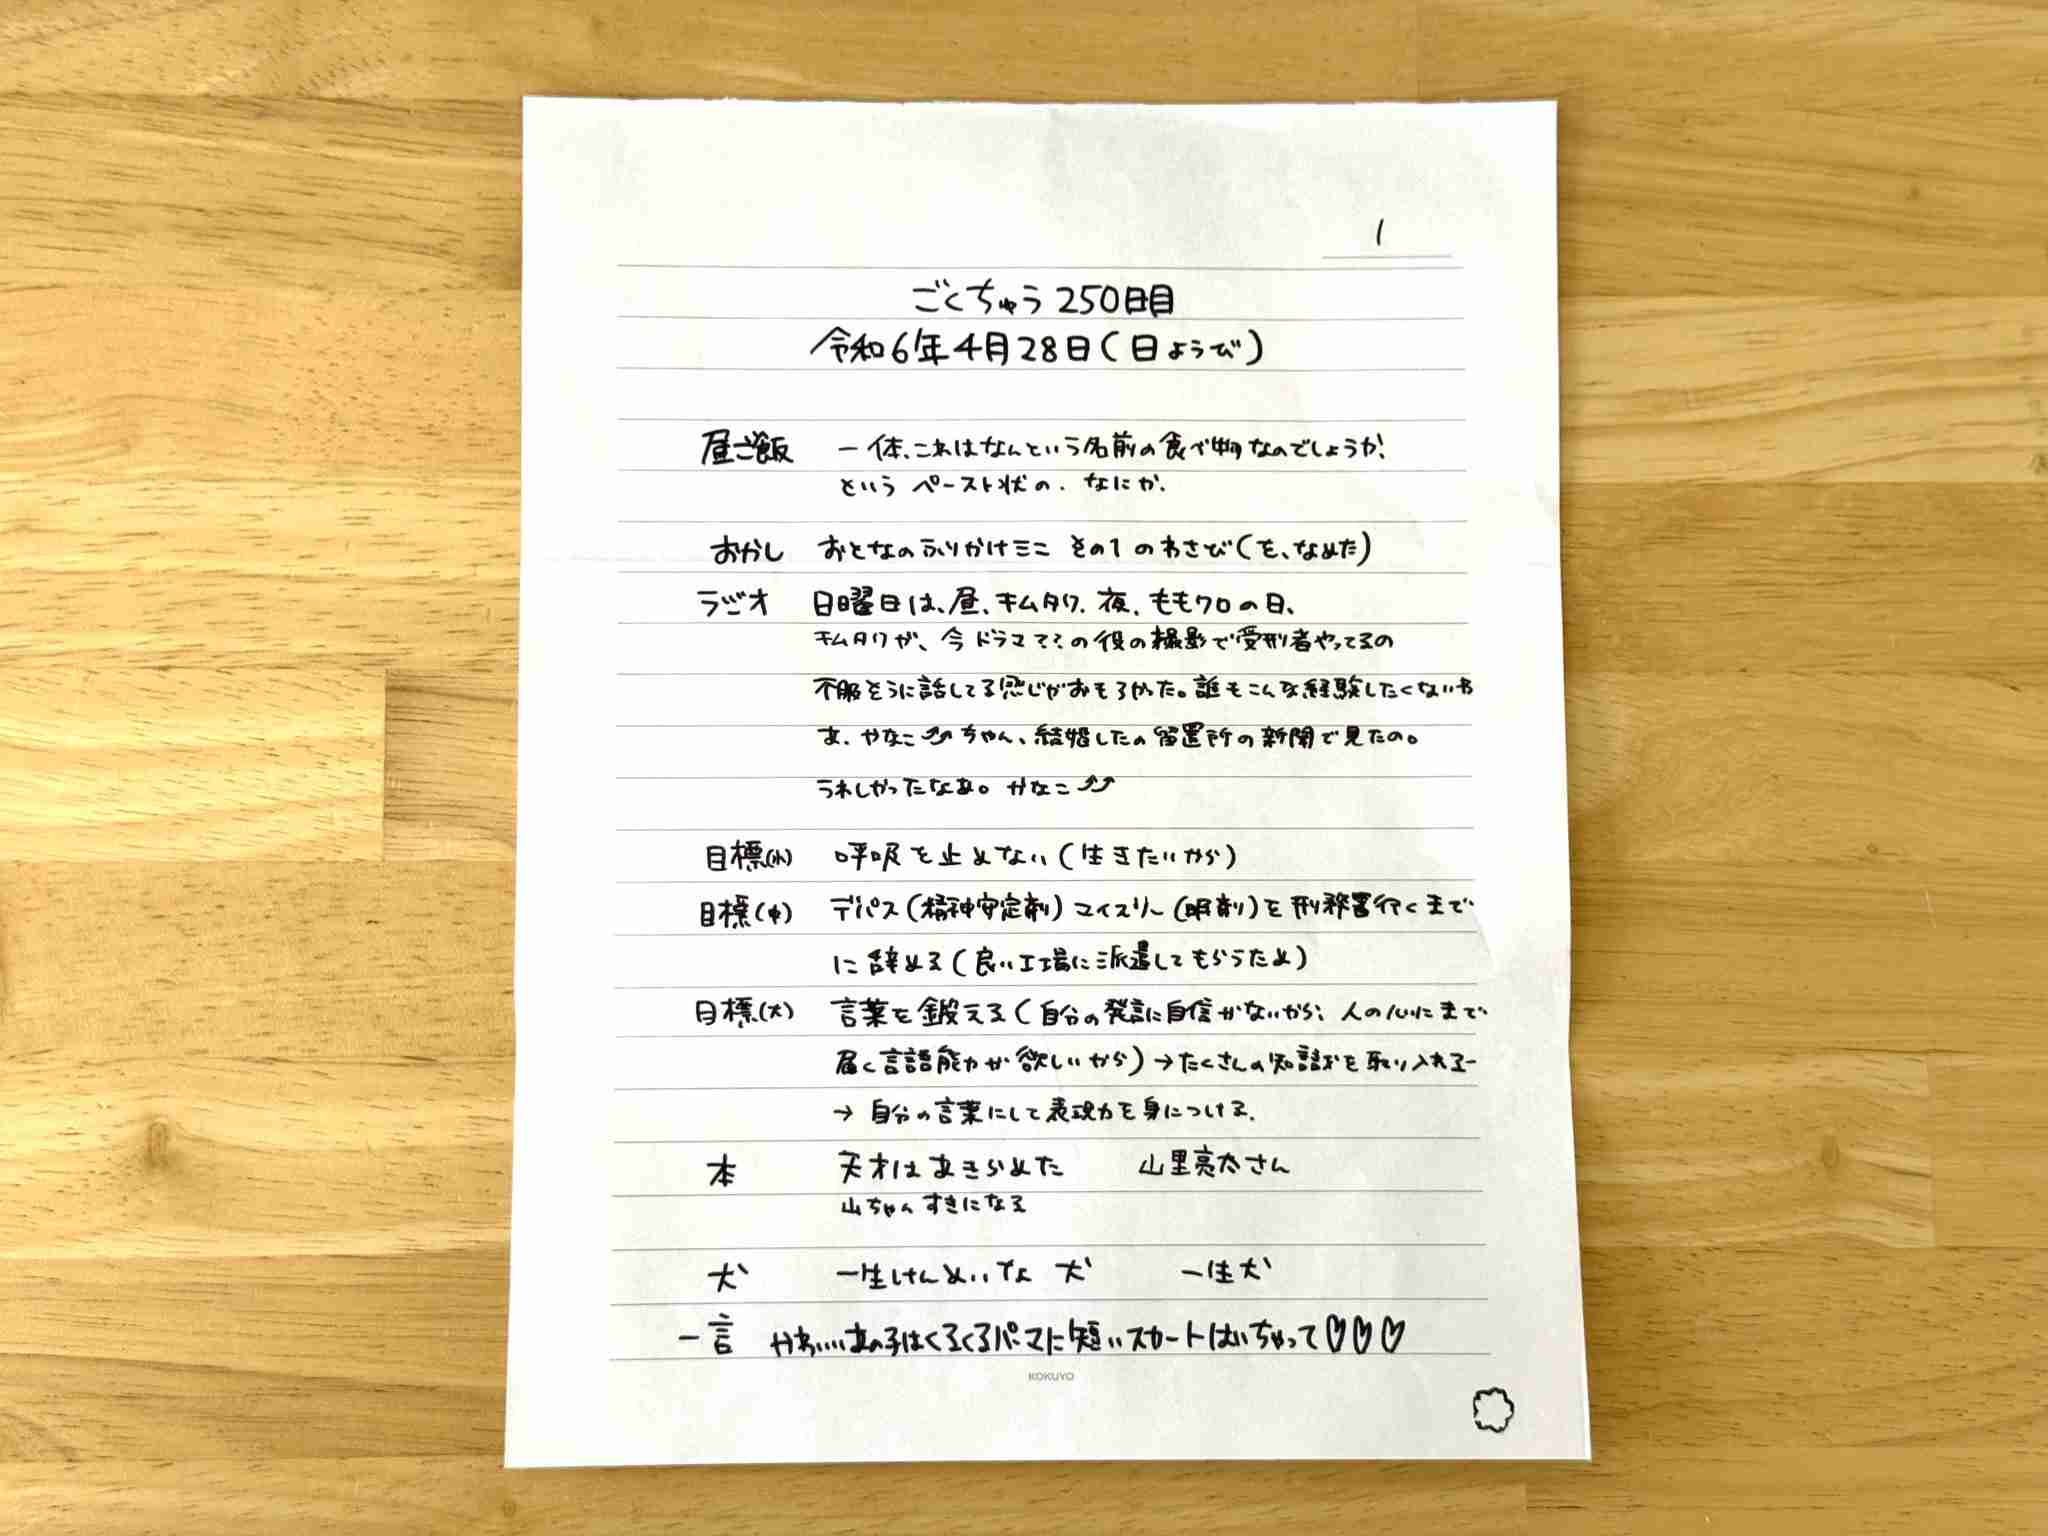 1
ごくちゅう250日目
令和6年4月28日(日ようび)
昼ご飯 一体、これはなんという名前の食べ物なのでしょうか!
という ペースト状の、なにか、
おかし おとなのふりかけミニ その1のわさび(を、なめた)
ラジオ 日曜日は、昼、キムタク、夜、ももクロの日、
キムタクが、今ドラマ??の役の撮影で受刑者やってるの
不服そうに話してる感じがおもろかった。誰もこんな経験したくないわ
あ、かなこ⤴⤴ちゃん、結婚したの留置所の新聞で見たの。
うれしかったなあ。かなこ⤴⤴
目標(小) 呼吸を止めない(生きたいから)
目標(中) デパス(精神安定剤)マイスリー(眠剤)を刑務署行くまで
に辞める(良い工場に派遣してもらうため)
目標(大) 言葉を鍛える(自分の発言に自信がないから、人の心にまで
届く言語能力が欲しいから)→たくさんの知識を取り入れるー
→ 自分の言葉にして表現力を身につける、
本 天才はあきらめた 山里亮太さん
山ちゃんすきになる
犬 一生けんめいな 犬 一生犬
一言 かわいいあの子はくるくるパーマに短いスカートはいちゃって♡♡♡
KOKUYO